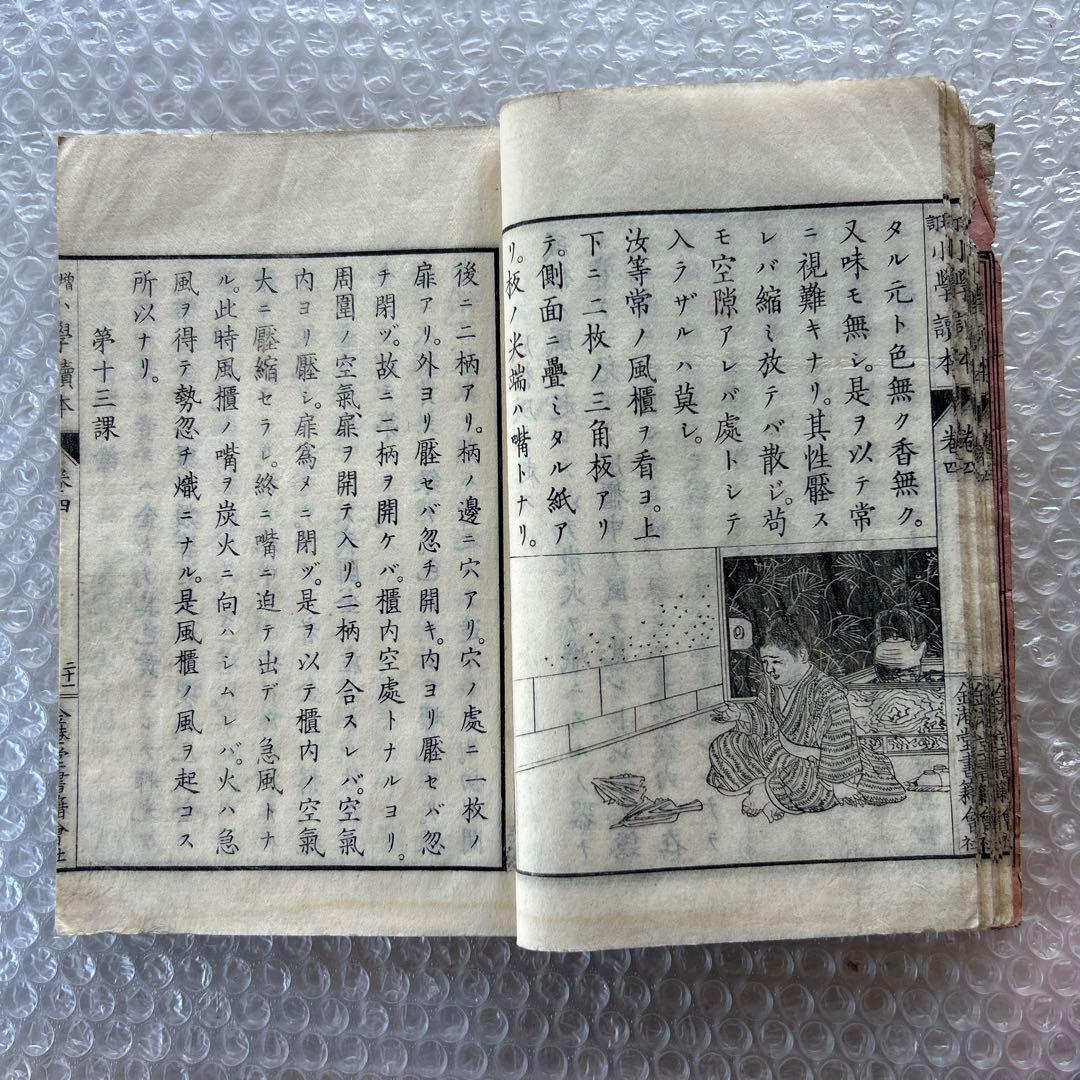 タル元ト色無ク香無ク。
又味モ無シ。是ヲ以テ常
ニ視難キナリ。其性壓ス
レバ縮ミ放テバ散ジ。苟
モ空隙アレバ處トシテ
入ラザルハ莫シ。
汝等常ノ風櫃ヲ看ヨ。上
下ニ二枚ノ三角板アリ
テ。側面ニ疊ミタル紙ア
リ。板ノ尖端ハ嘴トナリ。
後ニ二柄アリ。柄ノ邊ニ穴アリ。穴ノ處ニ一枚ノ
扉アリ。外ヨリ壓セバ忽チ開キ。内ヨリ壓セバ忽
チ閉ヅ。故ニ二柄ヲ開ケバ。櫃内空處トナルヨリ。
周圍ノ空氣扉ヲ開テ入リ。二柄ヲ合スレバ。空氣
内ヨリ壓シ。扉爲メニ閉ヅ。是ヲ以テ櫃内ノ空氣
大ニ壓縮セラレ。終ニ嘴ニ迫テ出デヽ急風トナ
ル。此時風櫃ノ嘴ヲ炭火ニ向ハシムレバ。火ハ急
風ヲ得テ勢忽チ熾ニナル。是風櫃ノ風ヲ起コス
所以ナリ。
第十三課
小學讀本
卷四
小學讀本
卷四
二十一
金港堂書籍會社